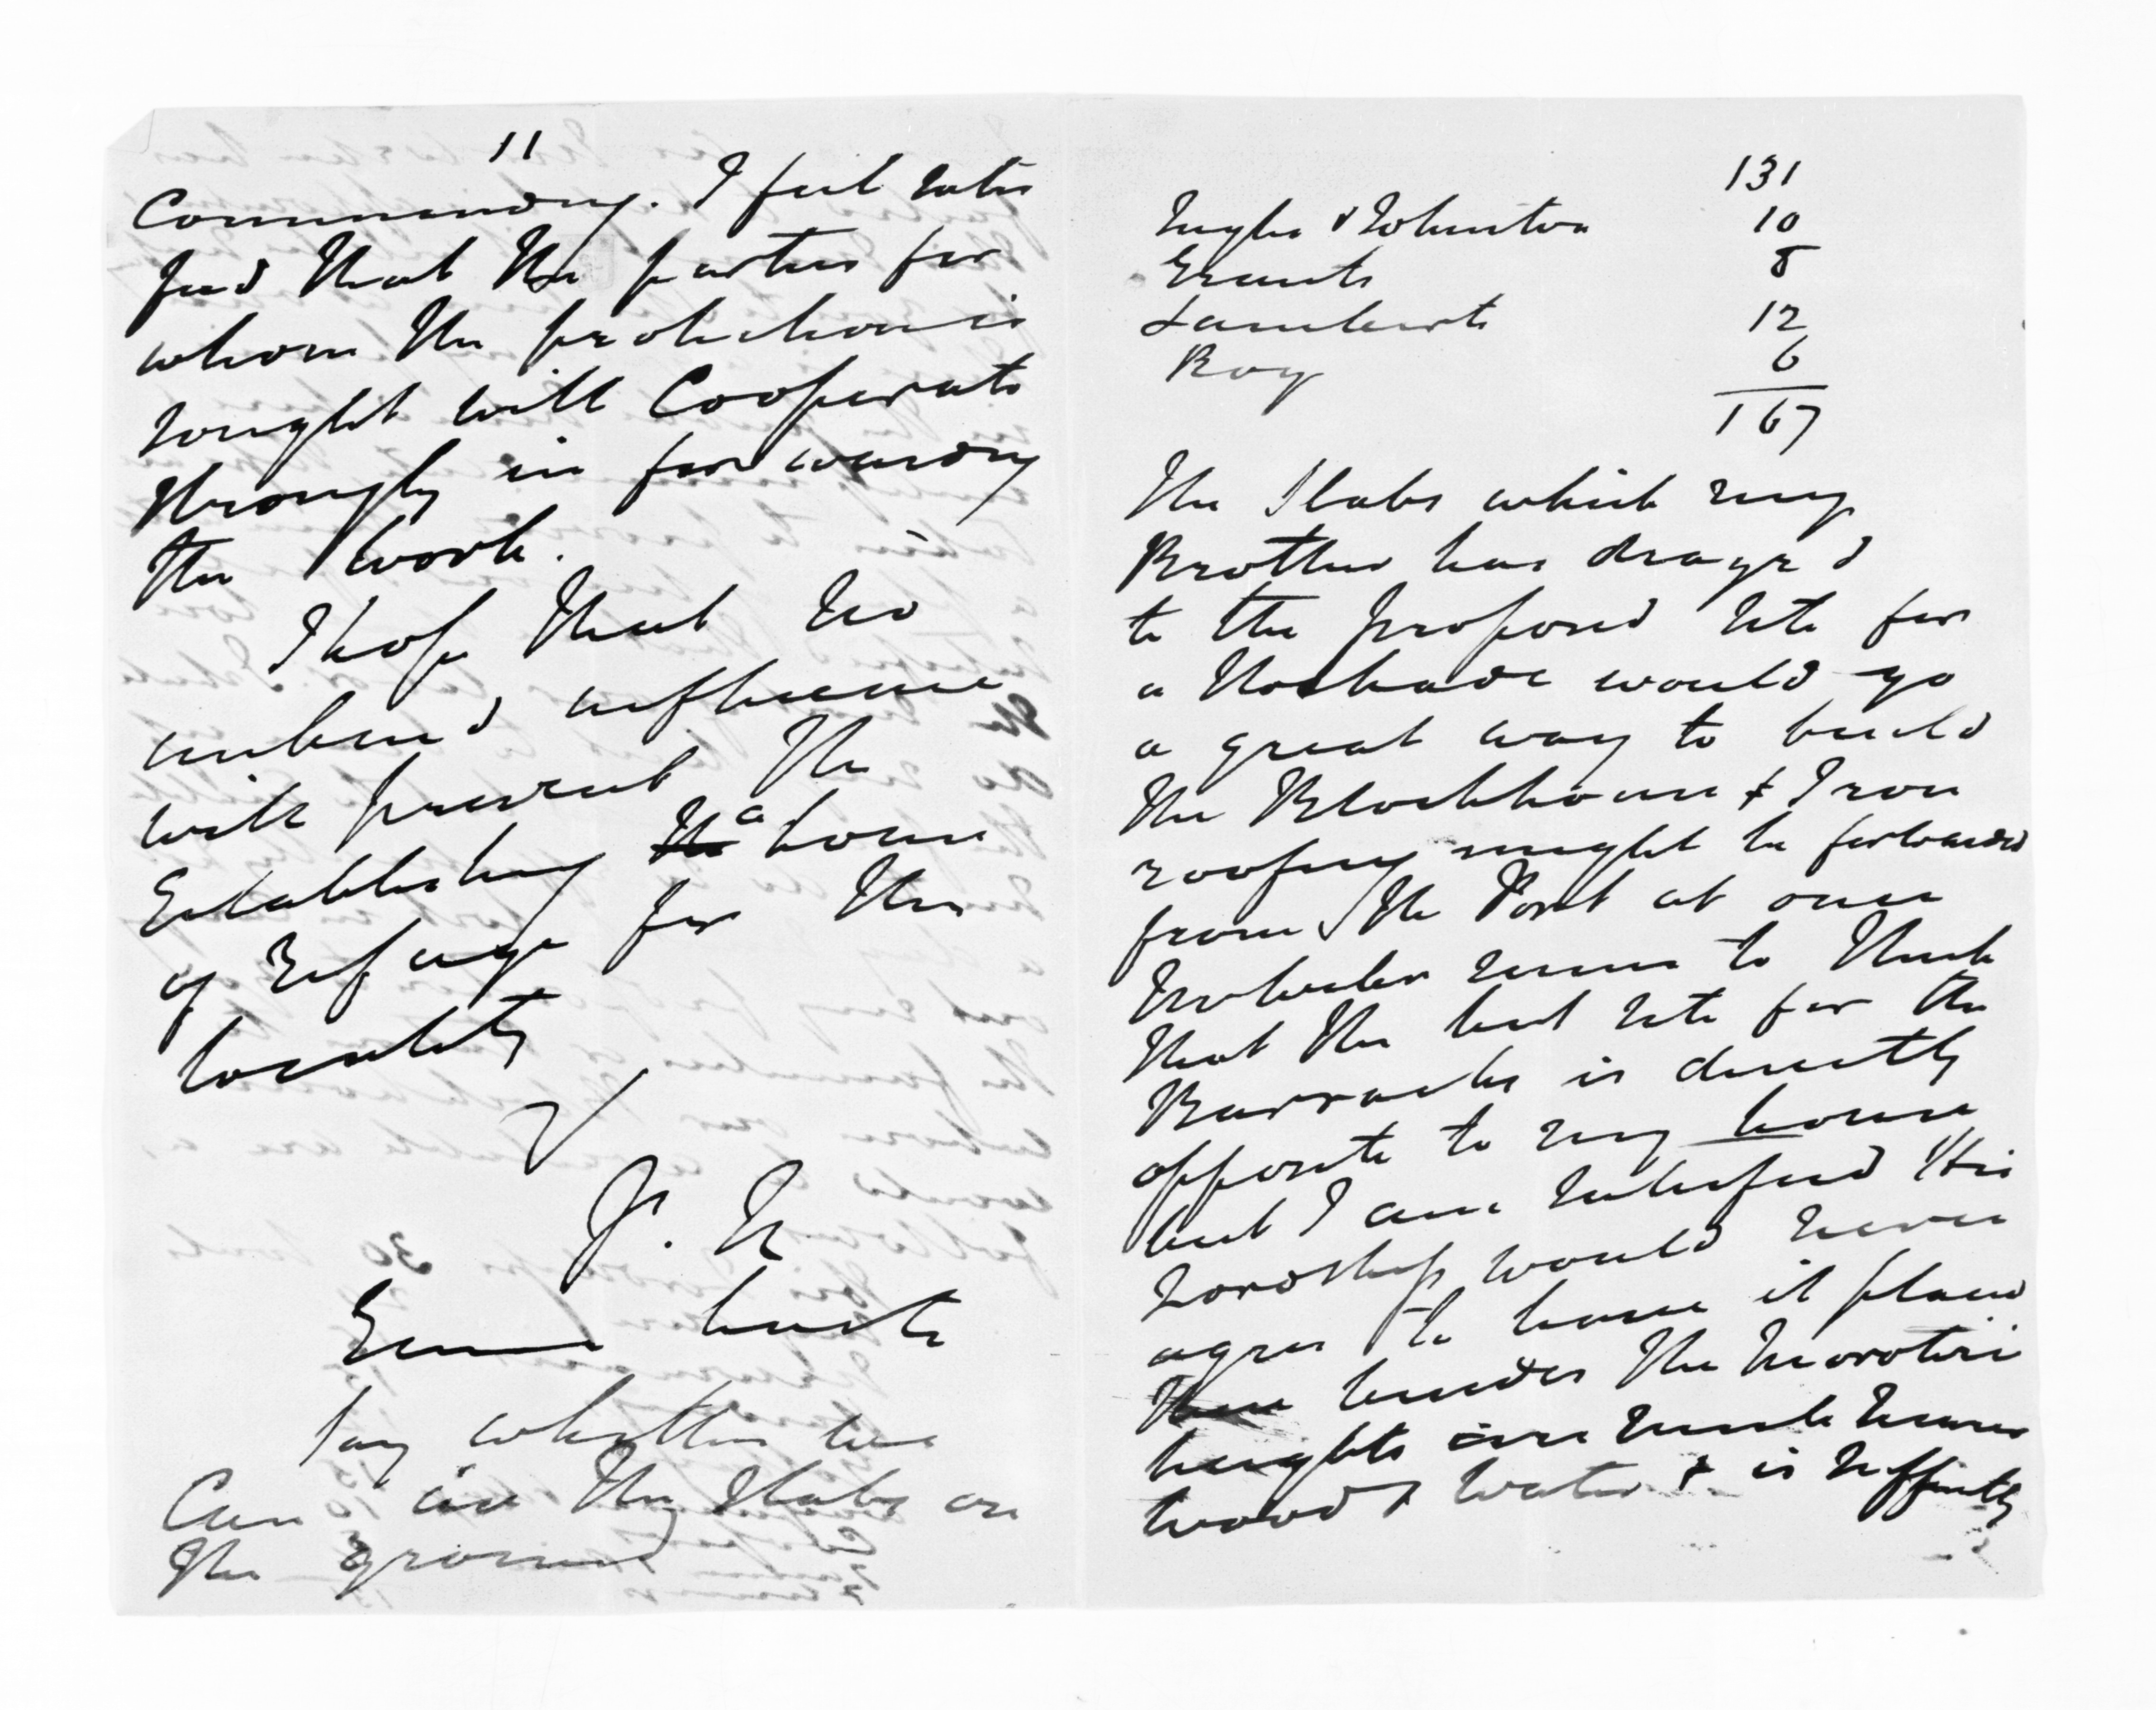 11
Commanding. I feel satis
fied that the parties for
whom the protection is
sought will Cooperate
strongly in forwarding
the work.
I hope that no
unkind influence
will prevent the
Establishing the a house
of Refuge for this
locality
J. N.
Send back
Say whether we
Can use the Slabs on
the ground
131
Inglis & Johnston 10
Grants 8
Lamberts 12
Roy 6
167
The Slabs which my
Brother has dragg'd
to the proposed site for
a Stockade would go
a great way to build
the Blockhouse & Iron
roofing might be forwarded
from the Port at once
seems to think
that the best site for the
Barracks is directly
opposite to my house
but I am satisfied His
Lordship would never
agree to have it placed
there besides the
heights are much nearer
wood & water & is sufficiently